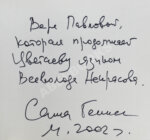 Варе Павловой,
которая продолжает
Цветаеву языком
Всеволода Некрасова.
Саша Генис
М. 2002 г.